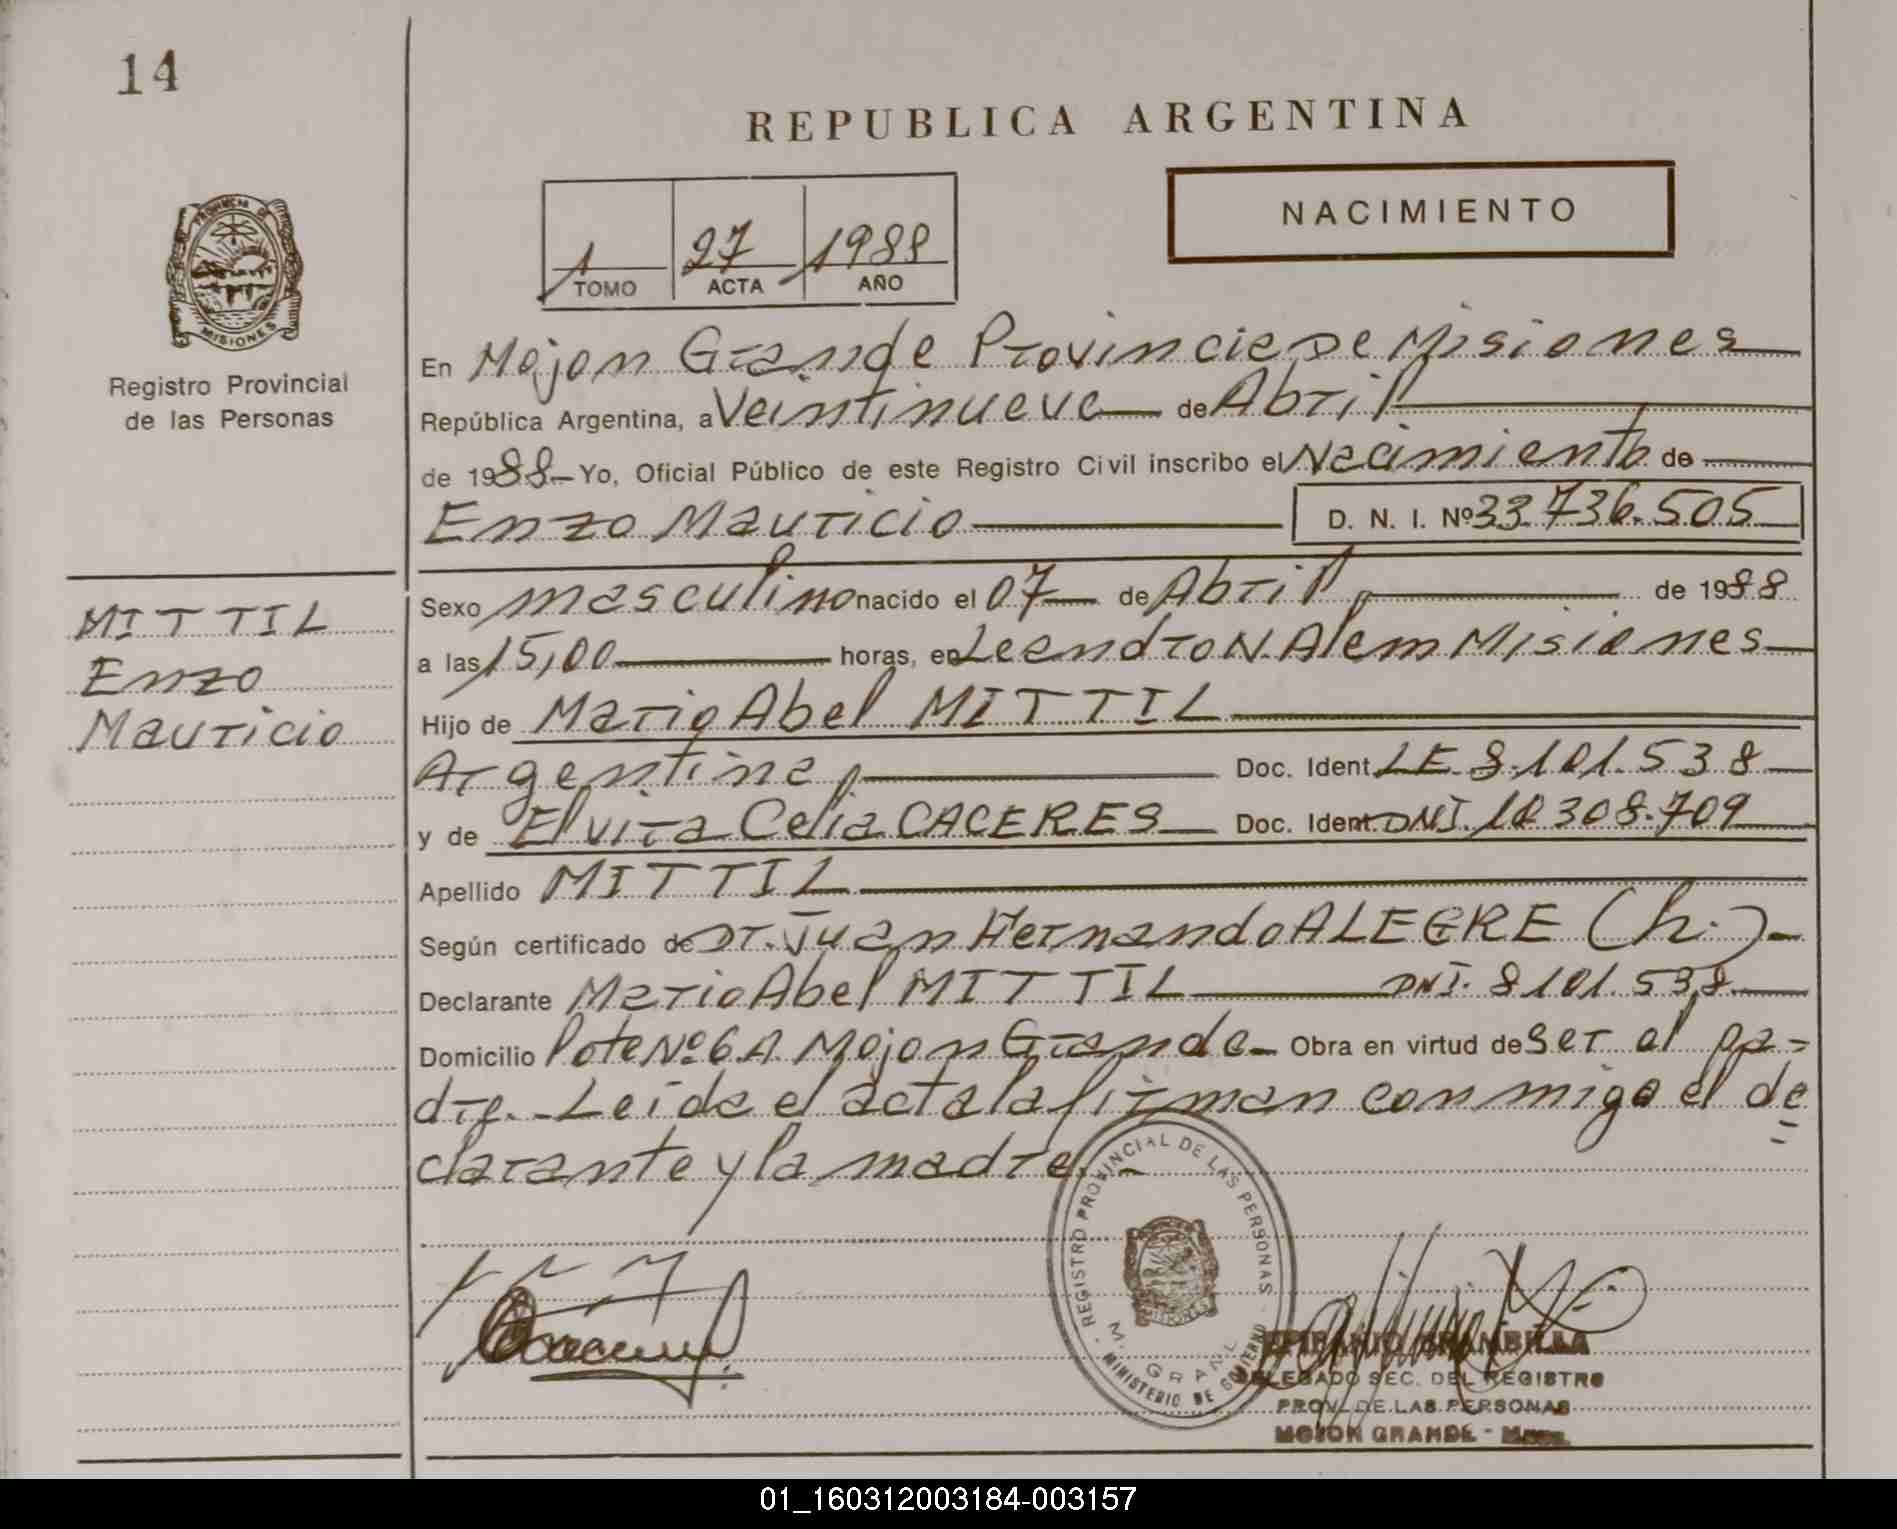 14
REPUBLICA ARGENTINA
NACIMIENTO
1 27 1988
TOMO ACTA AÑO
PROVINCIA DE
MISIONES
Registro Provincial
de las Personas
En Mojon Grande Provincia De Misiones
República Argentina, a Veintinueve de Abril
de 1988 - Yo, Oficial Público de este Registro Civil inscribo el Nacimiento de
Enzo Mauricio D. N. I. Nº 33.736.505
MITTIL
Enzo
Mauricio
Sexo masculino nacido el 07 de Abril de 1988
a las 15,00 horas, en Leandro N. Alem Misiones
Hijo de Mario Abel MITTIL
Argentina Doc. Ident. LE 8.101.538
y de Elvira Celia CACERES Doc. Ident. DNI. 10 308.709
Apellido MITTIL
Según certificado de Dr. Juan Hernando ALEGRE (h.)-
Declarante Mario Abel MITTIL DNI. 8 101.538
Domicilio lote Nº 6 A Mojon Grande - Obra en virtud de ser el pa-
dre.- Leida el acta la firman conmigo el de
clarante y la madre.-
REGISTRO PROVINCIAL DE LAS PERSONAS
MINISTERIO DE GOBIERNO
M. GRANDE
EPIFANIO BRAMBILLA
DELEGADO SEC. DEL REGISTRO
PROV. DE LAS PERSONAS
MOJON GRANDE -
01_160312003184-003157